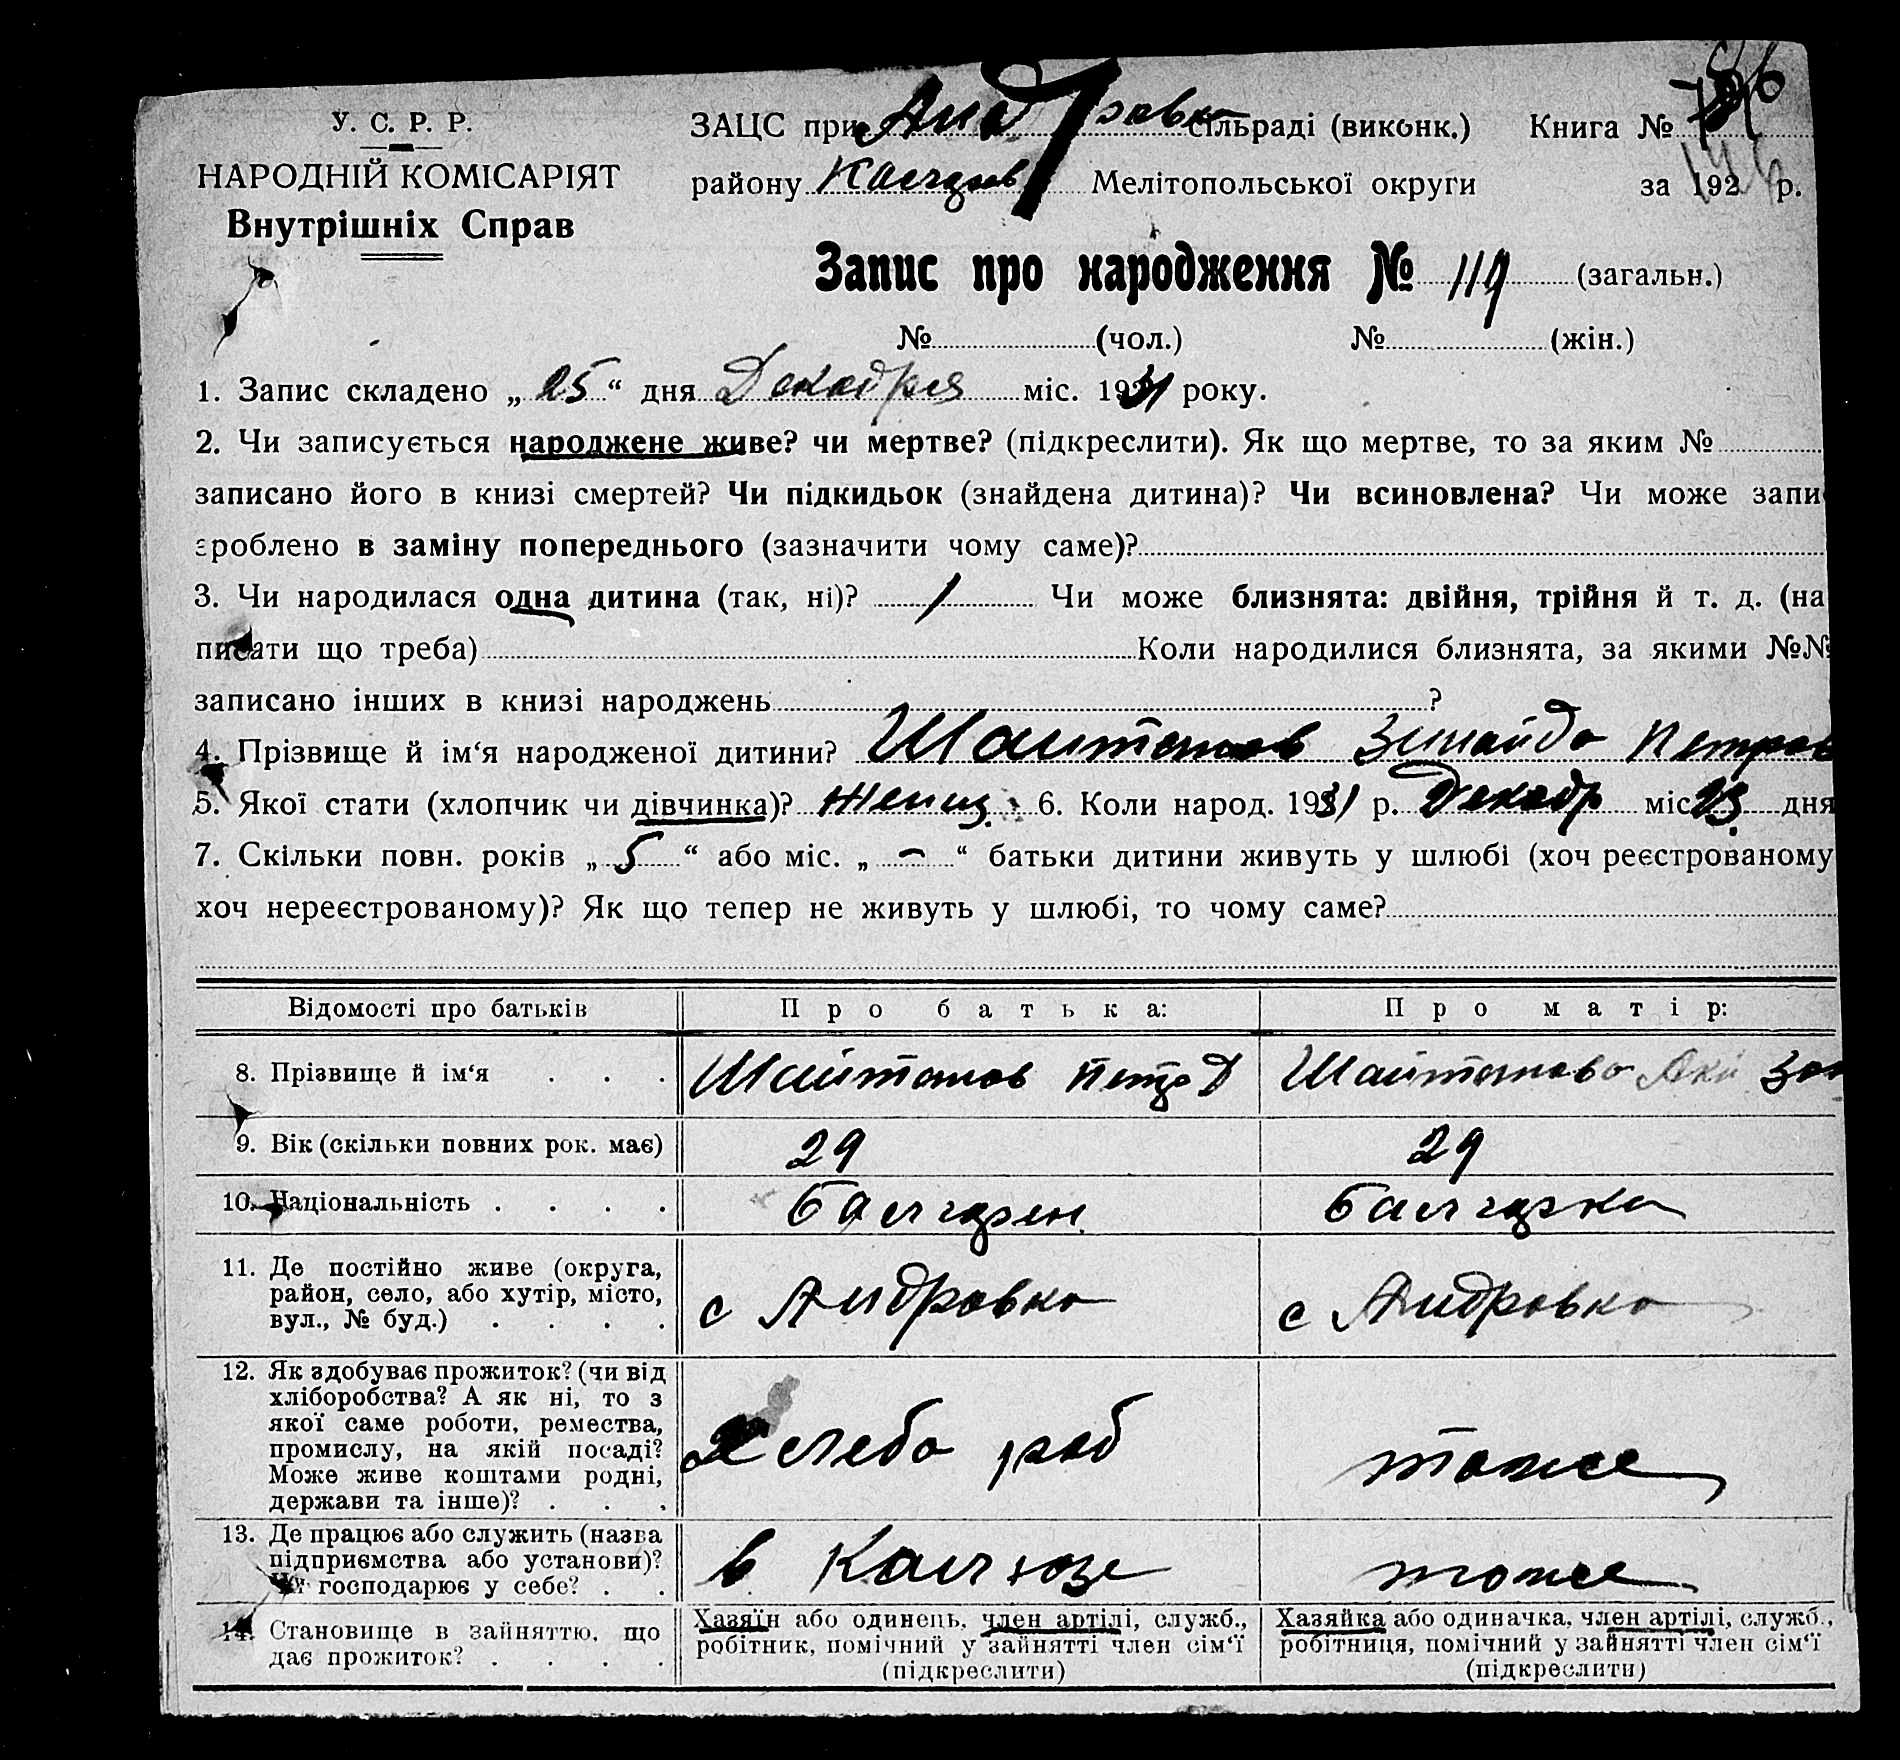 У. С. Р. Р.
НАРОДНІЙ КОМІСАРІЯТ
Внутрішніх Справ
ЗАЦС при Андровка сільраді (виконк.) Книга №
району Мелітопольської округи за 192 р.
Запис про народження № 119 (загальн.)
№ (чол.) № (жін.)
1. Запис складено „ 25 “ дня Декабря міс. 1931 року.
2. Чи записується народжене живе? чи мертве? (підкреслити). Як що мертве, то за яким №
записано його в книзі смертей? Чи підкидьок (знайдена дитина)? Чи всиновлена? Чи може запи
зроблено в заміну попереднього (зазначити чому саме)?
3. Чи народилася одна дитина (так, ні)? 1 Чи може близнята: двійня, трійня й т. д. (на
писати що треба) Коли народилися близнята, за якими №№
записано інших в книзі народжень ?
4. Прізвище й ім‘я народженої дитини? Шайтанов Зинаида Петров
5. Якої стати (хлопчик чи дівчинка)? женщ. 6. Коли народ. 1931 р. Декабр міс. 23. дня
7. Скільки повн. років „ 5 “ або міс. „ - “ батьки дитини живуть у шлюбі (хоч реєстрованому
хоч нереєстрованому)? Як що тепер не живуть у шлюбі, то чому саме?
Відомості про батьків Про батька: Про матір:
8. Прізвище й ім‘я . . . Шайтанов Петр Д Шайтанова
9. Вік (скільки повних рок. має) 29 29
10. Національність . . . . Балгарин Балгарка
11. Де постійно живе (округа,
район, село, або хутір, місто,
вул., № буд.) . . . .
с Андровка с Андровка
12. Як здобуває прожиток? (чи від
хліборобства? А як ні, то з
якої саме роботи, ремества,
промислу, на якій посаді?
Може живе коштами родні,
держави та інше)? . . .
Хлебо роб тоже
13. Де працює або служить (назва
підприємства або установи)?
Чи господарює у себе? . .
в Калхозе тоже
14. Становище в зайняттю, що
дає прожиток? . . . .
Хазяїн або одинець, член артілі, служб.,
робітник, помічний у зайнятті член сім‘ї
(підкреслити)
Хазяйка або одиначка, член артілі, служб.,
робітниця, помічний у зайнятті член сім‘ї
(підкреслити)